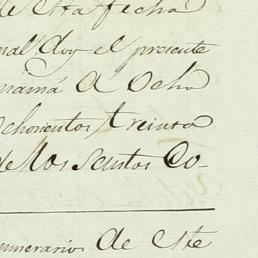 de esta fecha
nal doy el presente
namá a ocho
ochocientos treinta
de los Santos Co-
numerario de este